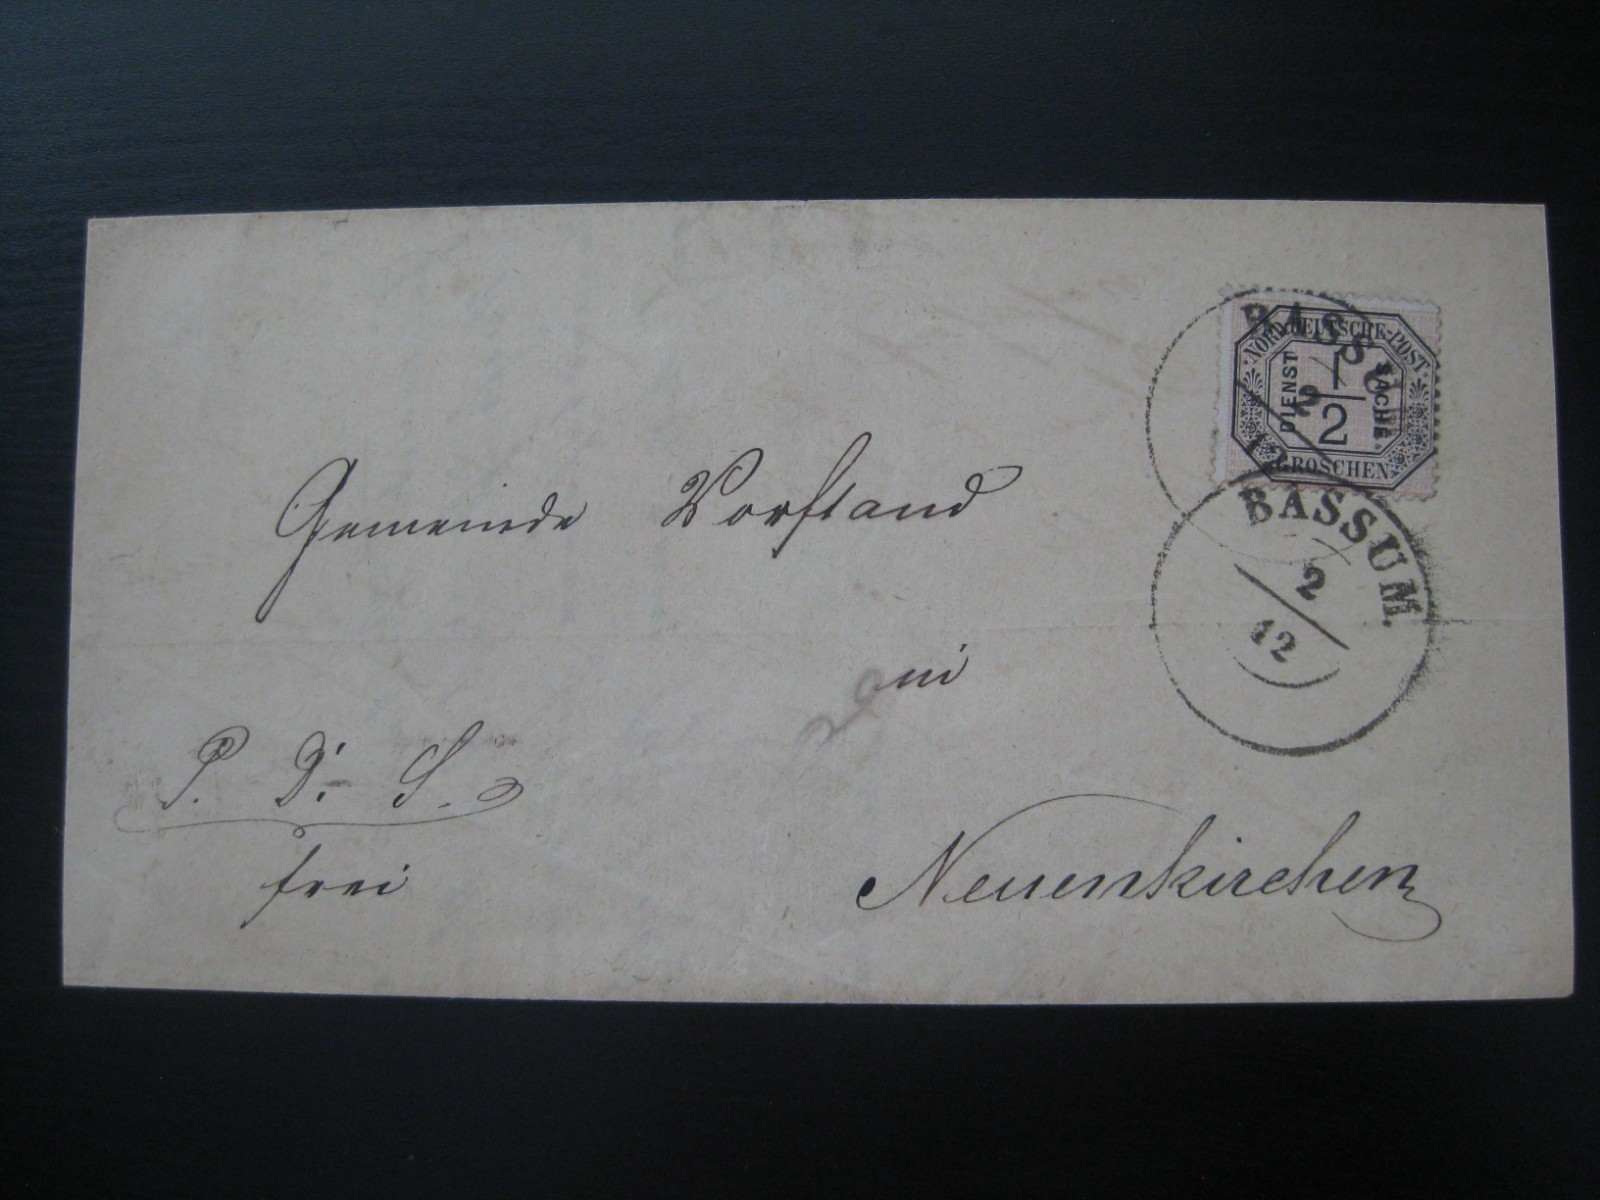 NORDDEUTSCHE-POST
DIENST 1/2 SACHE
GROSCHEN
BASSUM
2
12
BASSUM.
2
12
Gemeinde Vorstand
in
P. D. S.
frei
Neuenkirchen